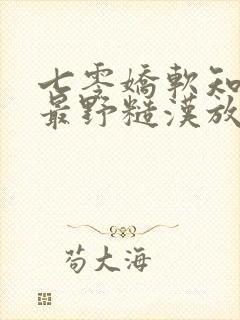 七零嬌軟知
最野糙漢放
荀大海